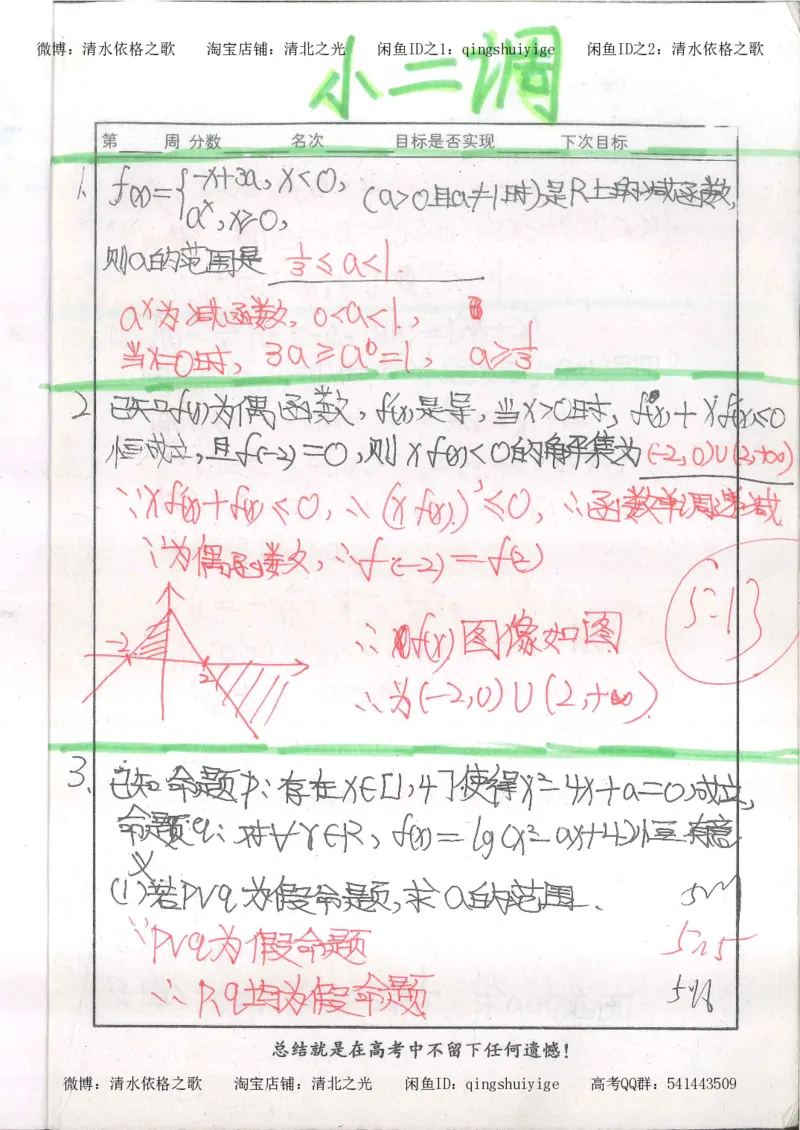 微博：清水依格之歌 淘宝店铺：清北之光 闲鱼ID之1：qingshuiyige 闲鱼ID之2：清水依格之歌
小二调
第 周 分数 名次 目标是否实现 下次目标
1. f(x)={-x+3a, x<0,
a^x, x≥0, (a>0且a≠1时)是R上的减函数,
则a的范围是 1/3≤a<1
a^x为减函数, 0<a<1,
当x=0时, 3a≥a^0=1, a≥1/3
2 已知f(x)为偶函数, f(x)是导, 当x>0时, f(x)+xf(x)≤0
恒成立, 且f(-2)=0, 则xf(x)<0的解集为(-2,0)∪(2,+∞)
∵xf(x)+f(x)≤0, ∴(xf(x))'≤0, ∴函数单调递减
∵为偶函数, ∴f(-2)=f(2)
5.13
-2 2
∴xf(x)图像如图
∴为(-2,0)∪(2,+∞).
3. 已知命题P: 存在x∈[1,4]使得x²-4x+a=0成立,
命题q: 对∀x∈R, f(x)=lg(x²-ax+4)恒有意
义
(1)若P∨q为假命题, 求a的范围.
∵P∨q为假命题
∴P,q均为假命题
总结就是在高考中不留下任何遗憾！
微博：清水依格之歌 淘宝店铺：清北之光 闲鱼ID：qingshuiyige 高考QQ群：541443509